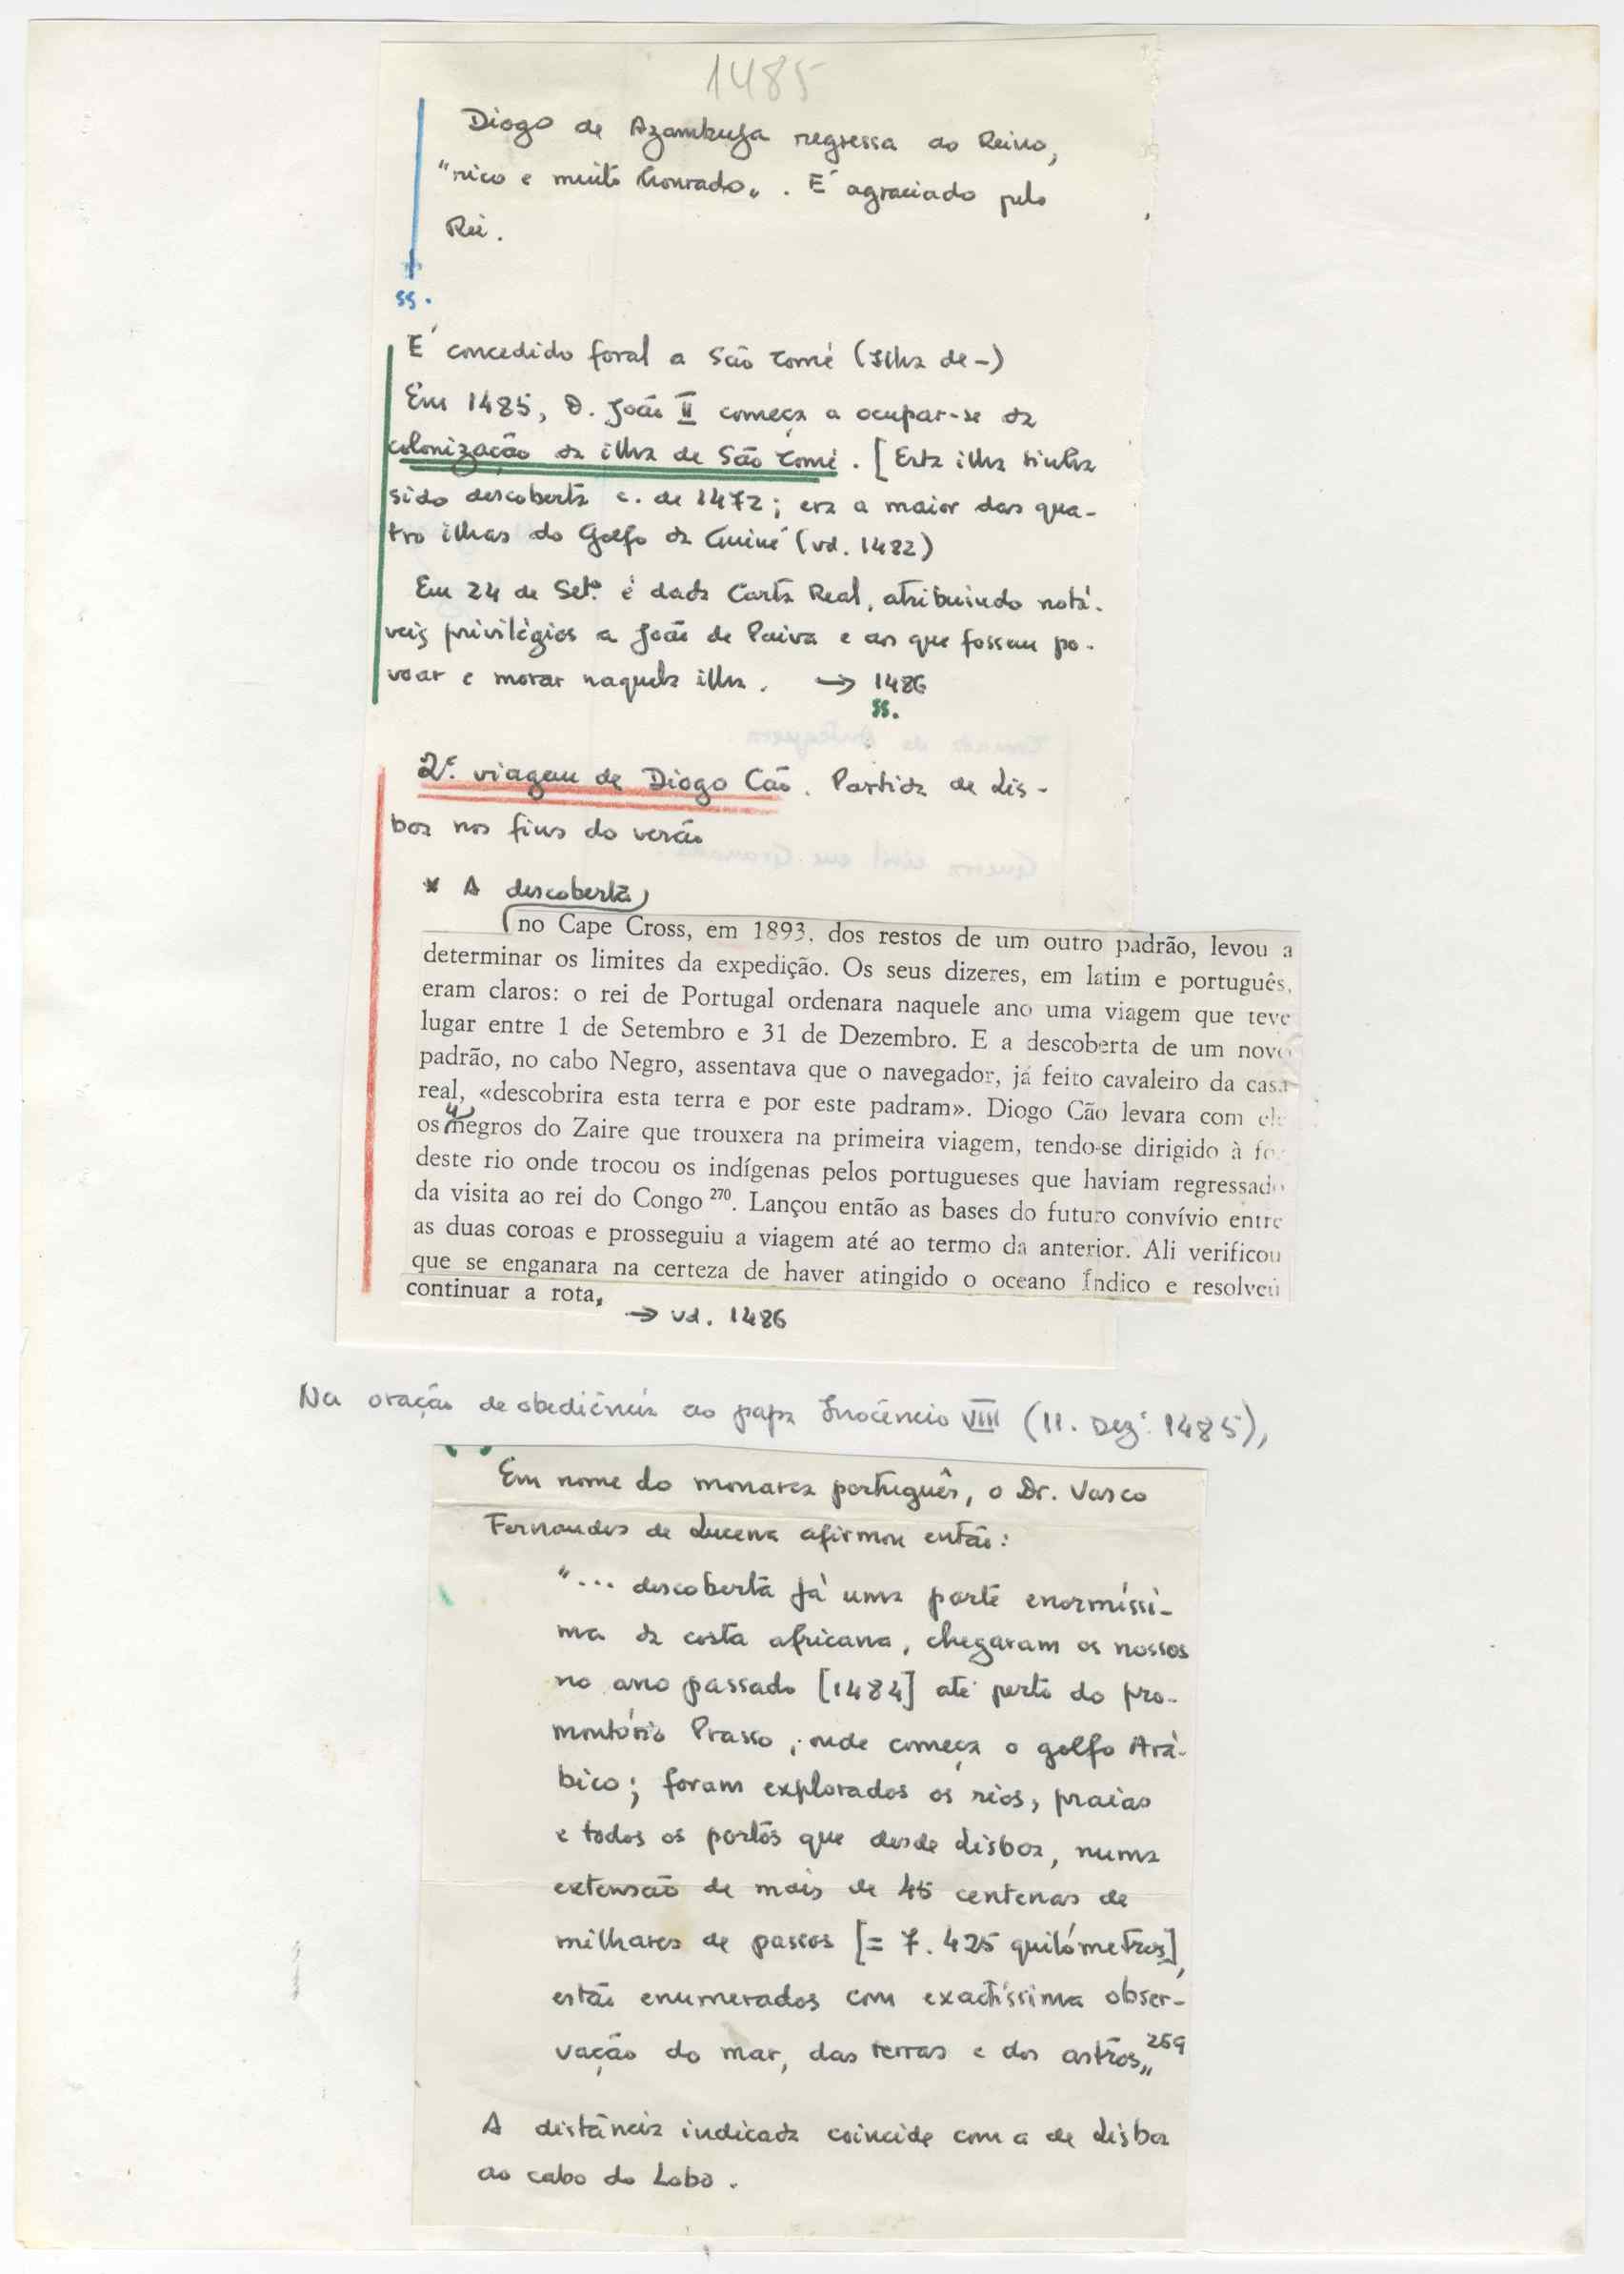 1485
Diogo de Azambuja regressa ao Reino,
"rico e muito honrado". É agraciado pelo
Rei.
ss.
É concedido foral a São Tomé (Ilha de -)
Em 1485, D. João II começa a ocupar-se da
colonização da ilha de São Tomé. [Esta ilha tinha
sido descoberta c. de 1472; era a maior das qua-
tro ilhas do Golfo da Guiné (vd. 1482)
Em 24 de Setº. é dada Carta Real, atribuindo notá-
veis privilégios a João de Paiva e aos que fossem po-
voar e morar naquela ilha. → 1486
ss.
2ª. viagem de Diogo Cão. Partida de Lis-
boa nos fins do verão
* A descoberta
no Cape Cross, em 1893, dos restos de um outro padrão, levou a
determinar os limites da expedição. Os seus dizeres, em latim e português,
eram claros: o rei de Portugal ordenara naquele ano uma viagem que teve
lugar entre 1 de Setembro e 31 de Dezembro. E a descoberta de um novo
padrão, no cabo Negro, assentava que o navegador, já feito cavaleiro da casa
real, «descobrira esta terra e por este padram». Diogo Cão levara com ele
os 4 negros do Zaire que trouxera na primeira viagem, tendo-se dirigido à foz
deste rio onde trocou os indígenas pelos portugueses que haviam regressado
da visita ao rei do Congo 270. Lançou então as bases do futuro convívio entre
as duas coroas e prosseguiu a viagem até ao termo da anterior. Ali verificou
que se enganara na certeza de haver atingido o oceano Índico e resolveu
continuar a rota,
→ vd. 1486
Na oração de obediência ao papa Inocêncio VIII (11. Dezº. 1485),
Em nome do monarca português, o Dr. Vasco
Fernandes de Lucena afirmou então:
"... descoberta já uma parte enormíssi-
ma da costa africana, chegaram os nossos
no ano passado [1484] até perto do pro-
montório Prasso, onde começa o golfo Ará-
bico; foram explorados os rios, praias
e todos os portos que desde Lisboa, numa
extensão de mais de 45 centenas de
milhares de passos [= 7.425 quilómetros],
estão enumerados com exactíssima obser-
vação do mar, das terras e dos astros" 259
A distância indicada coincide com a de Lisboa
ao cabo do Lobo.